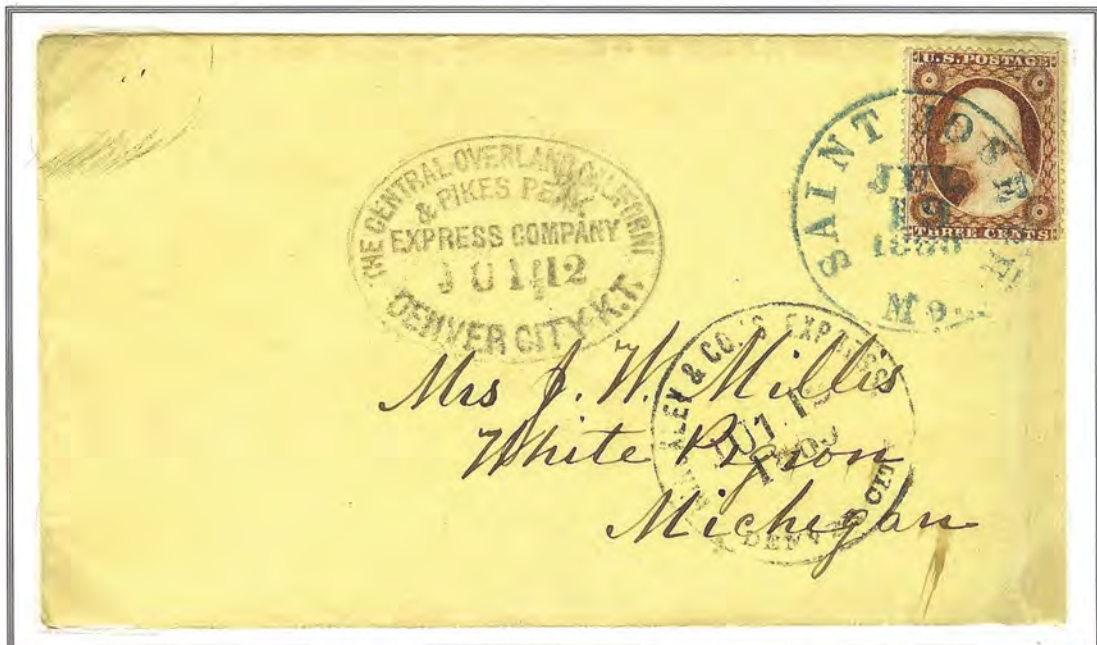 U.S. POSTAGE
THREE CENTS
SAINT JOSEPH
JUL
19
1860
Mo.
THE CENTRAL OVERLAND CALIFORNI
& PIKES PEAK
EXPRESS COMPANY
JUL 12
DENVER CITY K.T.
ALEY & CO.'S EXPRESS
JUL
DENVER CIT
Mrs J. W. Millis
White Pigeon
Michigan